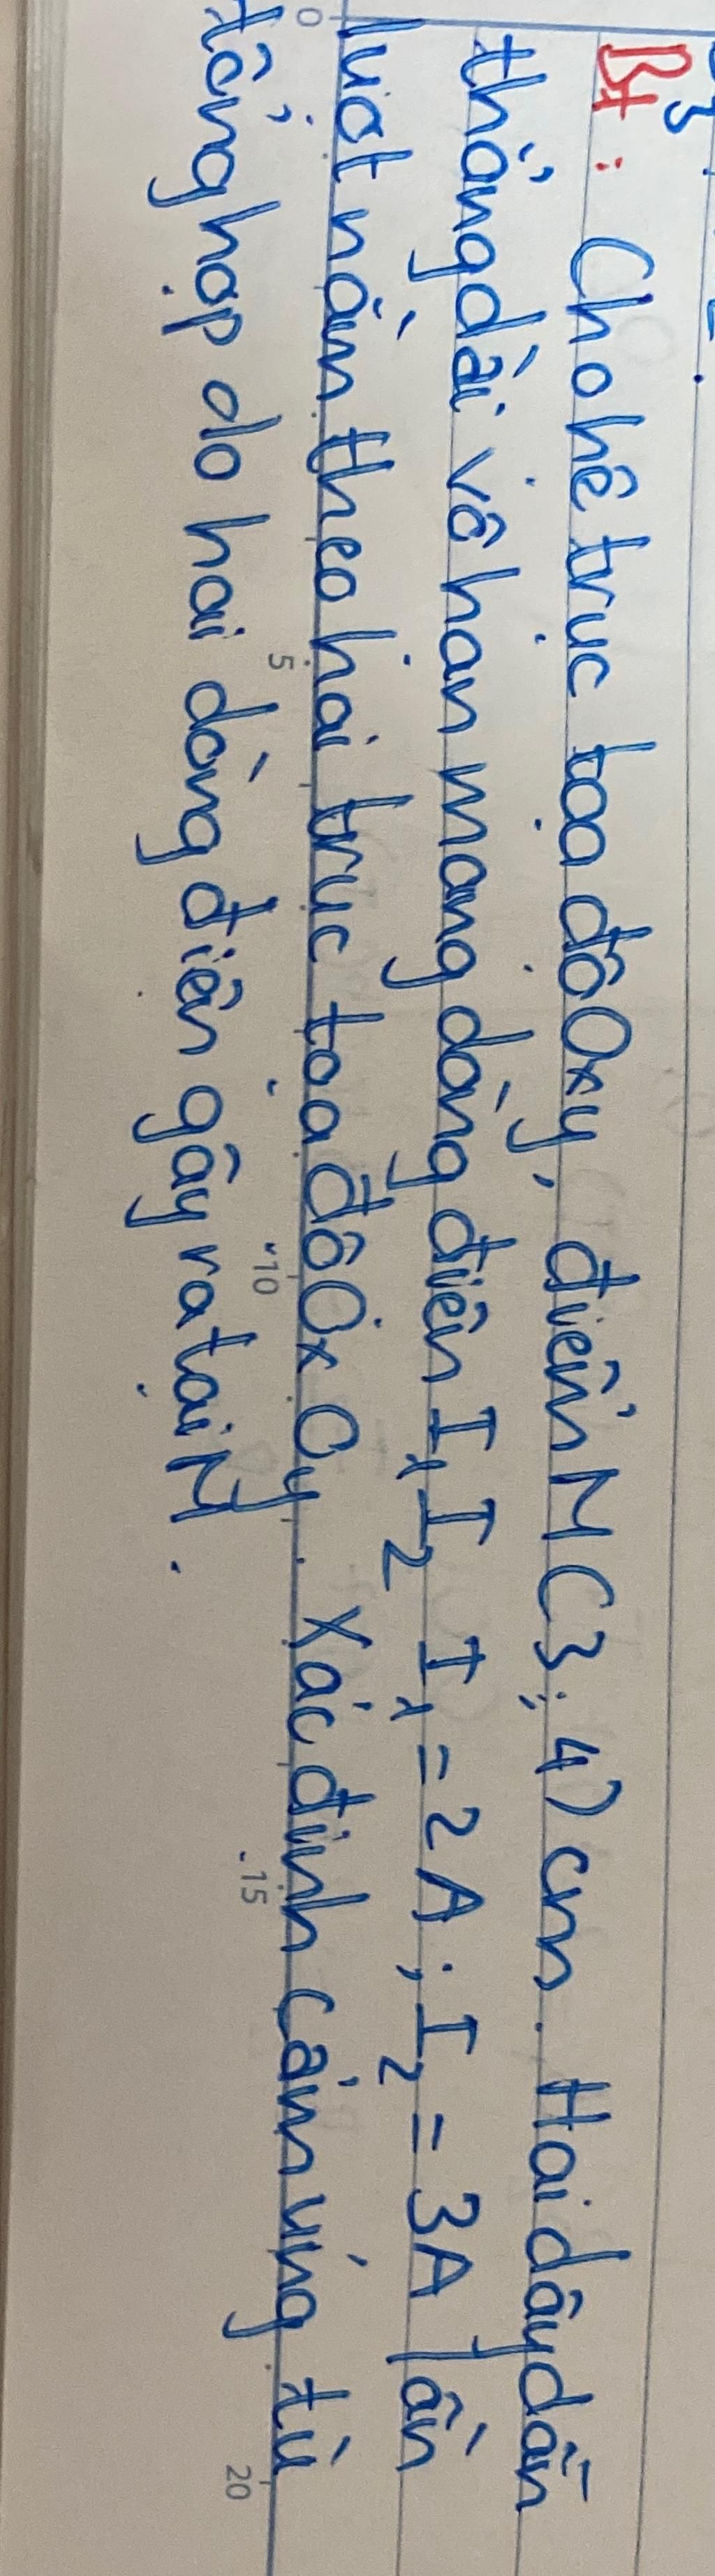 Bt: Cho hệ trục tọa độ Oxy, điểm M (3; 4) cm. Hai dây dẫn
thẳng dài vô hạn mang dòng điện I1 I2 I1 = 2A; I2 = 3A lần
lượt nằm theo hai trục tọa độ Ox Oy. Xác định cảm ứng từ
tổng hợp do hai dòng điện gây ra tại M.
0 5 10 15 20